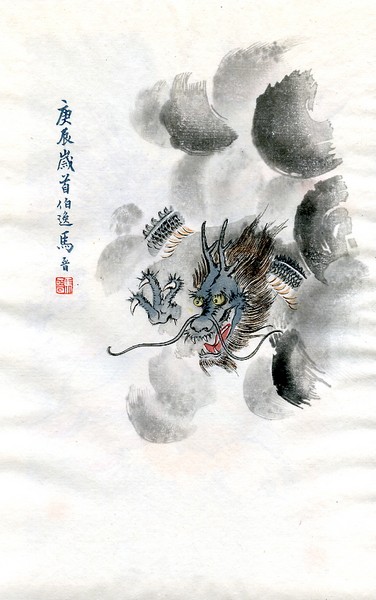 庚辰歲首伯逸馬晉